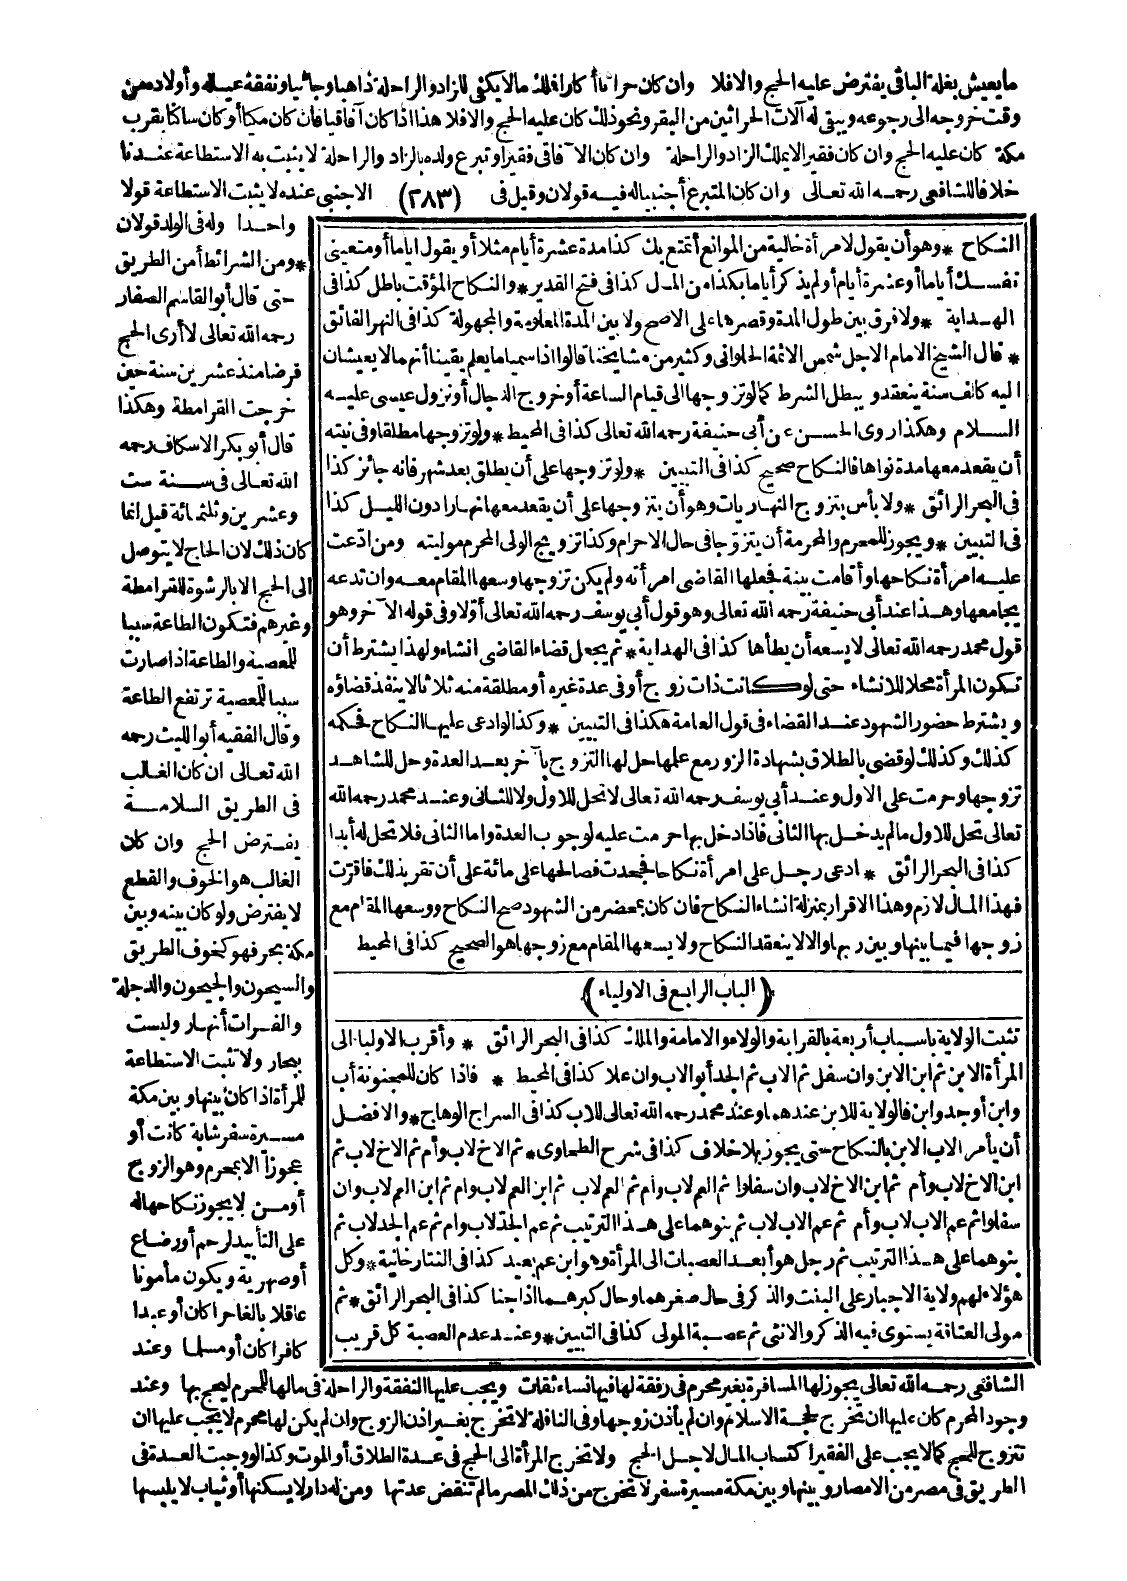 ما يعيش بغلة الباقى يفترض عليه الحج والا فلا وان كان حراثا أكارا فملك ما لا يكفى للزاد والراحلة ذاهبا وجائيا ونفقة عياله وأولاده من
وقت خروجه الى رجوعه ويبقى له آلات الحراثين من البقر ونحو ذلك كان عليه الحج والا فلا هذا اذا كان آفاقيا فان كان مكيا أو كان ساكنا بقرب
مكة كان عليه الحج وان كان فقيرا لا يملك الزاد والراحلة وان كان الآفاقى فقيرا وتبرع ولده بالزاد والراحلة لا يثبت به الاستطاعة عندنا
خلافا للشافعى رحمه الله تعالى وان كان المتبرع أجنبيا له فيه قولان وقيل فى (٢٨٣) الاجنبى عنده لا يثبت الاستطاعة قولا
واحدا وله فى الولد قولان
*ومن الشرائط أمن الطريق
حتى قال أبو القاسم الصفار
رحمه الله تعالى لا أرى الحج
فرضا منذ عشرين سنة حين
خرجت القرامطة وهكذا
قال أبو بكر الاسكاف رحمه
الله تعالى فى سنة ست
وعشرين وثلثمائة قيل انما
كان ذلك لان الحاج لا يتوصل
الى الحج الا بالرشوة للقرامطة
وغيرهم فتكون الطاعة سببا
للمعصية والطاعة اذا صارت
سببا للمعصية ترتفع الطاعة
وقال الفقيه أبو الليث رحمه
الله تعالى ان كان الغالب
فى الطريق السلامة
يفترض الحج وان كان
الغالب هو الخوف والقطع
لا يفترض ولو كان بينه وبين
مكة بحر فهو كخوف الطريق
والسيحون والجيحون والدجلة
والفرات أنهار وليست
ببحار ولا تثبت الاستطاعة
للمرأة اذا كان بينها وبين مكة
مسيرة سفر شابة كانت أو
عجوزا الا بمحرم وهو الزوج
أو من لا يجوز نكاحها له
على التأبيد لرحم أو رضاع
أو صهرية ويكون مأمونا
عاقلا بالغا حرا كان أو عبدا
كافرا كان أو مسلما وعند
النكاح *وهو أن يقول لامرأة خالية من الموانع أتمتع بك كذا مدة عشرة أيام مثلا أو يقول اياما أو متعينى
نفسك أياما أو عشرة أيام أو لم يذكر أياما بكذا من المال كذا فى فتح القدير* والنكاح المؤقت باطل كذا فى
الهداية *ولا فرق بين طول المدة وقصرها على الاصح ولا بين المدة المعلومة والمجهولة كذا فى النهر الفائق
*قال الشيخ الامام الاجل شمس الائمة الحلوانى وكثير من مشايخنا قالوا اذا سميا ما يعلم يقينا أنهما لا يعيشان
اليه كألف سنة ينعقد ويبطل الشرط كما لو تزوجها الى قيام الساعة أو خروج الدجال أو نزول عيسى عليه
السلام وهكذا روى الحسن عن أبى حنيفة رحمه الله تعالى كذا فى المحيط *ولو تزوجها مطلقا وفى نيته
أن يقعد معها مدة نواها فالنكاح صحيح كذا فى التبيين *ولو تزوجها على أن يطلق بعد شهر فانه جائز كذا
فى البحر الرائق *ولا بأس بتزوج النهاريات وهو أن يتزوجها على أن يقعد معها نهارا دون الليل كذا
فى التبيين *ويجوز للمحرم والمحرمة أن يتزوجا فى حال الاحرام وكذا تزويج الولى المحرم موليته ومن ادّعت
عليه امرأة نكاحها وأقامت بينة فجعلها القاضى امرأته ولم يكن تزوجها وسعها المقام معه وان تدعه
يجامعها وهذا عند أبى حنيفة رحمه الله تعالى وهو قول أبى يوسف رحمه الله تعالى أوّلا وفى قوله الآخر وهو
قول محمد رحمه الله تعالى لا يسعه أن يطأها كذا فى الهداية *ثم يجعل قضاء القاضى انشاء ولهذا يشترط أن
تكون المرأة محلا للانشاء حتى لو كانت ذات زوج أو فى عدة غيره أو مطلقة منه ثلاثا لا ينفذ قضاؤه
ويشترط حضور الشهود عند القضاء فى قول العامة هكذا فى التبيين *وكذا لو ادعى عليها النكاح فحكمه
كذلك وكذلك لو قضى بالطلاق بشهادة الزور مع علمها حل لها التزوج بآخر بعد العدة وحل للشاهد
تزوجها وحرمت على الاول وعند أبى يوسف رحمه الله تعالى لا تحل للاول ولا للثانى وعند محمد رحمه الله
تعالى تحل للاول ما لم يدخل بها الثانى فاذا دخل بها حرمت عليه لوجوب العدة واما الثانى فلا تحل له أبدا
كذا فى البحر الرائق *ادعى رجل على امرأة نكاحا فجحدت فصالحها على مائة على أن تقر بذلك فاقرّت
فهذا المال لازم وهذا الاقرار بمنزلة انشاء النكاح فان كان بمحضر من الشهود صح النكاح ووسعها المقام مع
زوجها فيما بينها وبين ربها والا لا ينعقد النكاح ولا يسعها المقام مع زوجها هو الصحيح كذا فى المحيط
(الباب الرابع فى الاولياء)
تثبت الولاية باسباب أربعة بالقرابة والولاء والامامة والملك كذا فى البحر الرائق *وأقرب الاولياء الى
المرأة الابن ثم ابن الابن وان سفل ثم الاب ثم الجد أبو الاب وان علا كذا فى المحيط *فاذا كان للمجنونة أب
وابن أو جد وابن فالولاية للابن عندهما وعند محمد رحمه الله تعالى للاب كذا فى السراج الوهاج *والافضل
أن يأمر الاب الابن بالنكاح حتى يجوز بلا خلاف كذا فى شرح الطحاوى *ثم الاخ لاب وأم ثم الاخ لاب ثم
ابن الاخ لاب وأم ثم ابن الاخ لاب وان سفلوا ثم العم لاب وأم ثم العم لاب ثم ابن العم لاب وام ثم ابن العم لاب وان
سفلوا ثم عم الاب لاب وأم ثم عم الاب لاب ثم بنوهما على هذا الترتيب ثم عم الجد لاب وام ثم عم الجد لاب ثم
بنوهما على هذا الترتيب ثم رجل هو أبعد العصبات الى المرأة وهو ابن عم بعيد كذا فى التتارخانية *وكل
هؤلاء لهم ولاية الاجبار على البنت والذكر فى حال صغرهما وحال كبرهما اذا جنا كذا فى البحر الرائق *ثم
مولى العتاقة يستوى فيه الذكر والانثى ثم عصبة المولى كذا فى التبيين *وعند عدم العصبة كل قريب
الشافعى رحمه الله تعالى يجوز لها المسافرة بغير محرم فى رفقة لها فيها نساء ثقات ويجب عليها النفقة والراحلة فى مالها للمحرم ليحج بها وعند
وجود المحرم كان عليها ان تخرج لحجة الاسلام وان لم يأذن زوجها وفى النافلة لا تخرج بغير اذن الزوج وان لم يكن لها محرم لا يجب عليها ان
تتزوج للحج كما لا يجب على الفقير اكتساب المال لاجل الحج ولا تخرج المرأة الى الحج فى عدة الطلاق أو الموت وكذا لو وجبت العدة فى
الطريق فى مصر من الامصار وبينها وبين مكة مسيرة سفر لا تخرج من ذلك المصر ما لم تنقض عدتها ومن له دار لا يسكنها أو ثياب لا يلبسها